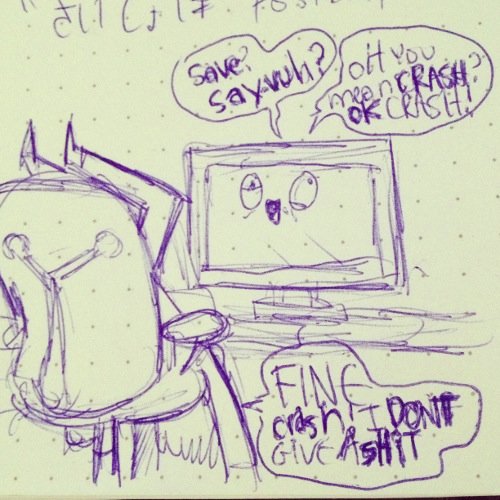 さいしょは
Save?
say-vuh?
OH YOU
mean CRASH?
OK CRASH!
FINE
crash! I DON'T
GIVE A SHIT